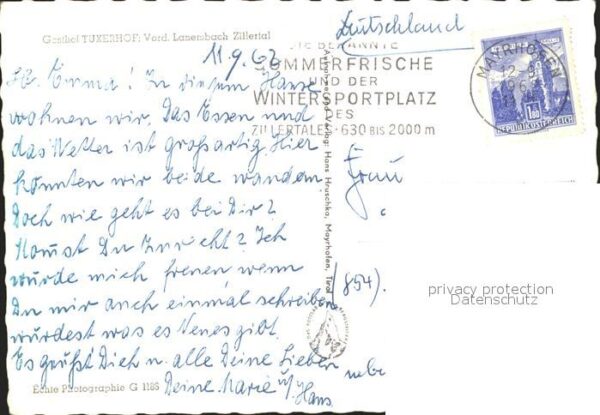 Gasthof TUXERHOF: Vord. Lanersbach Zillertal
11.9.62
Deutschland
DIE BEKANNTE
SOMMERFRISCHE
UND DER
WINTERSPORTPLATZ
DES
ZILLERTALES · 630 BIS 2000 m
MAYRHOFEN
12.-9.
196
1.80
REPUBLIK ÖSTERREICH
Lb. Emma! In diesem Hause
wohnen wir. Das Essen und
das Wetter ist großartig. Hier
könnten wir beide wandern.
Doch wie geht es bei Dir?
Kommst Du zurecht? Ich
würde mich freuen wenn
Du mir auch einmal schreiben
würdest was es Neues gibt.
Es grüßt Dich u. alle Deine Lieben
Deine Marie u/ Hans
Echte Photographie G 1186
Aufnahme und Verlag: Hans Hruschka, Mayrhofen, Tirol
Frau
(854).
privacy protection
Datenschutz